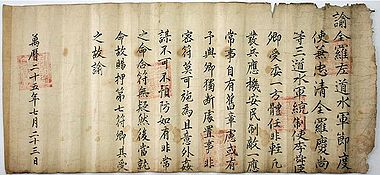 諭全羅左道水軍節度
使兼忠清全羅慶尙
等三道水軍統制使李舜臣
卿受委一方體任非輕凡
發兵應機安民制敵一應
常事自有舊章慮或有
予與卿獨斷處置事非
密符莫可施爲且意外姦
謀不可不預防如有非常
之命合符無疑然後當就
命故賜押第七符卿其受
之故諭
萬曆二十五年七月二十三日